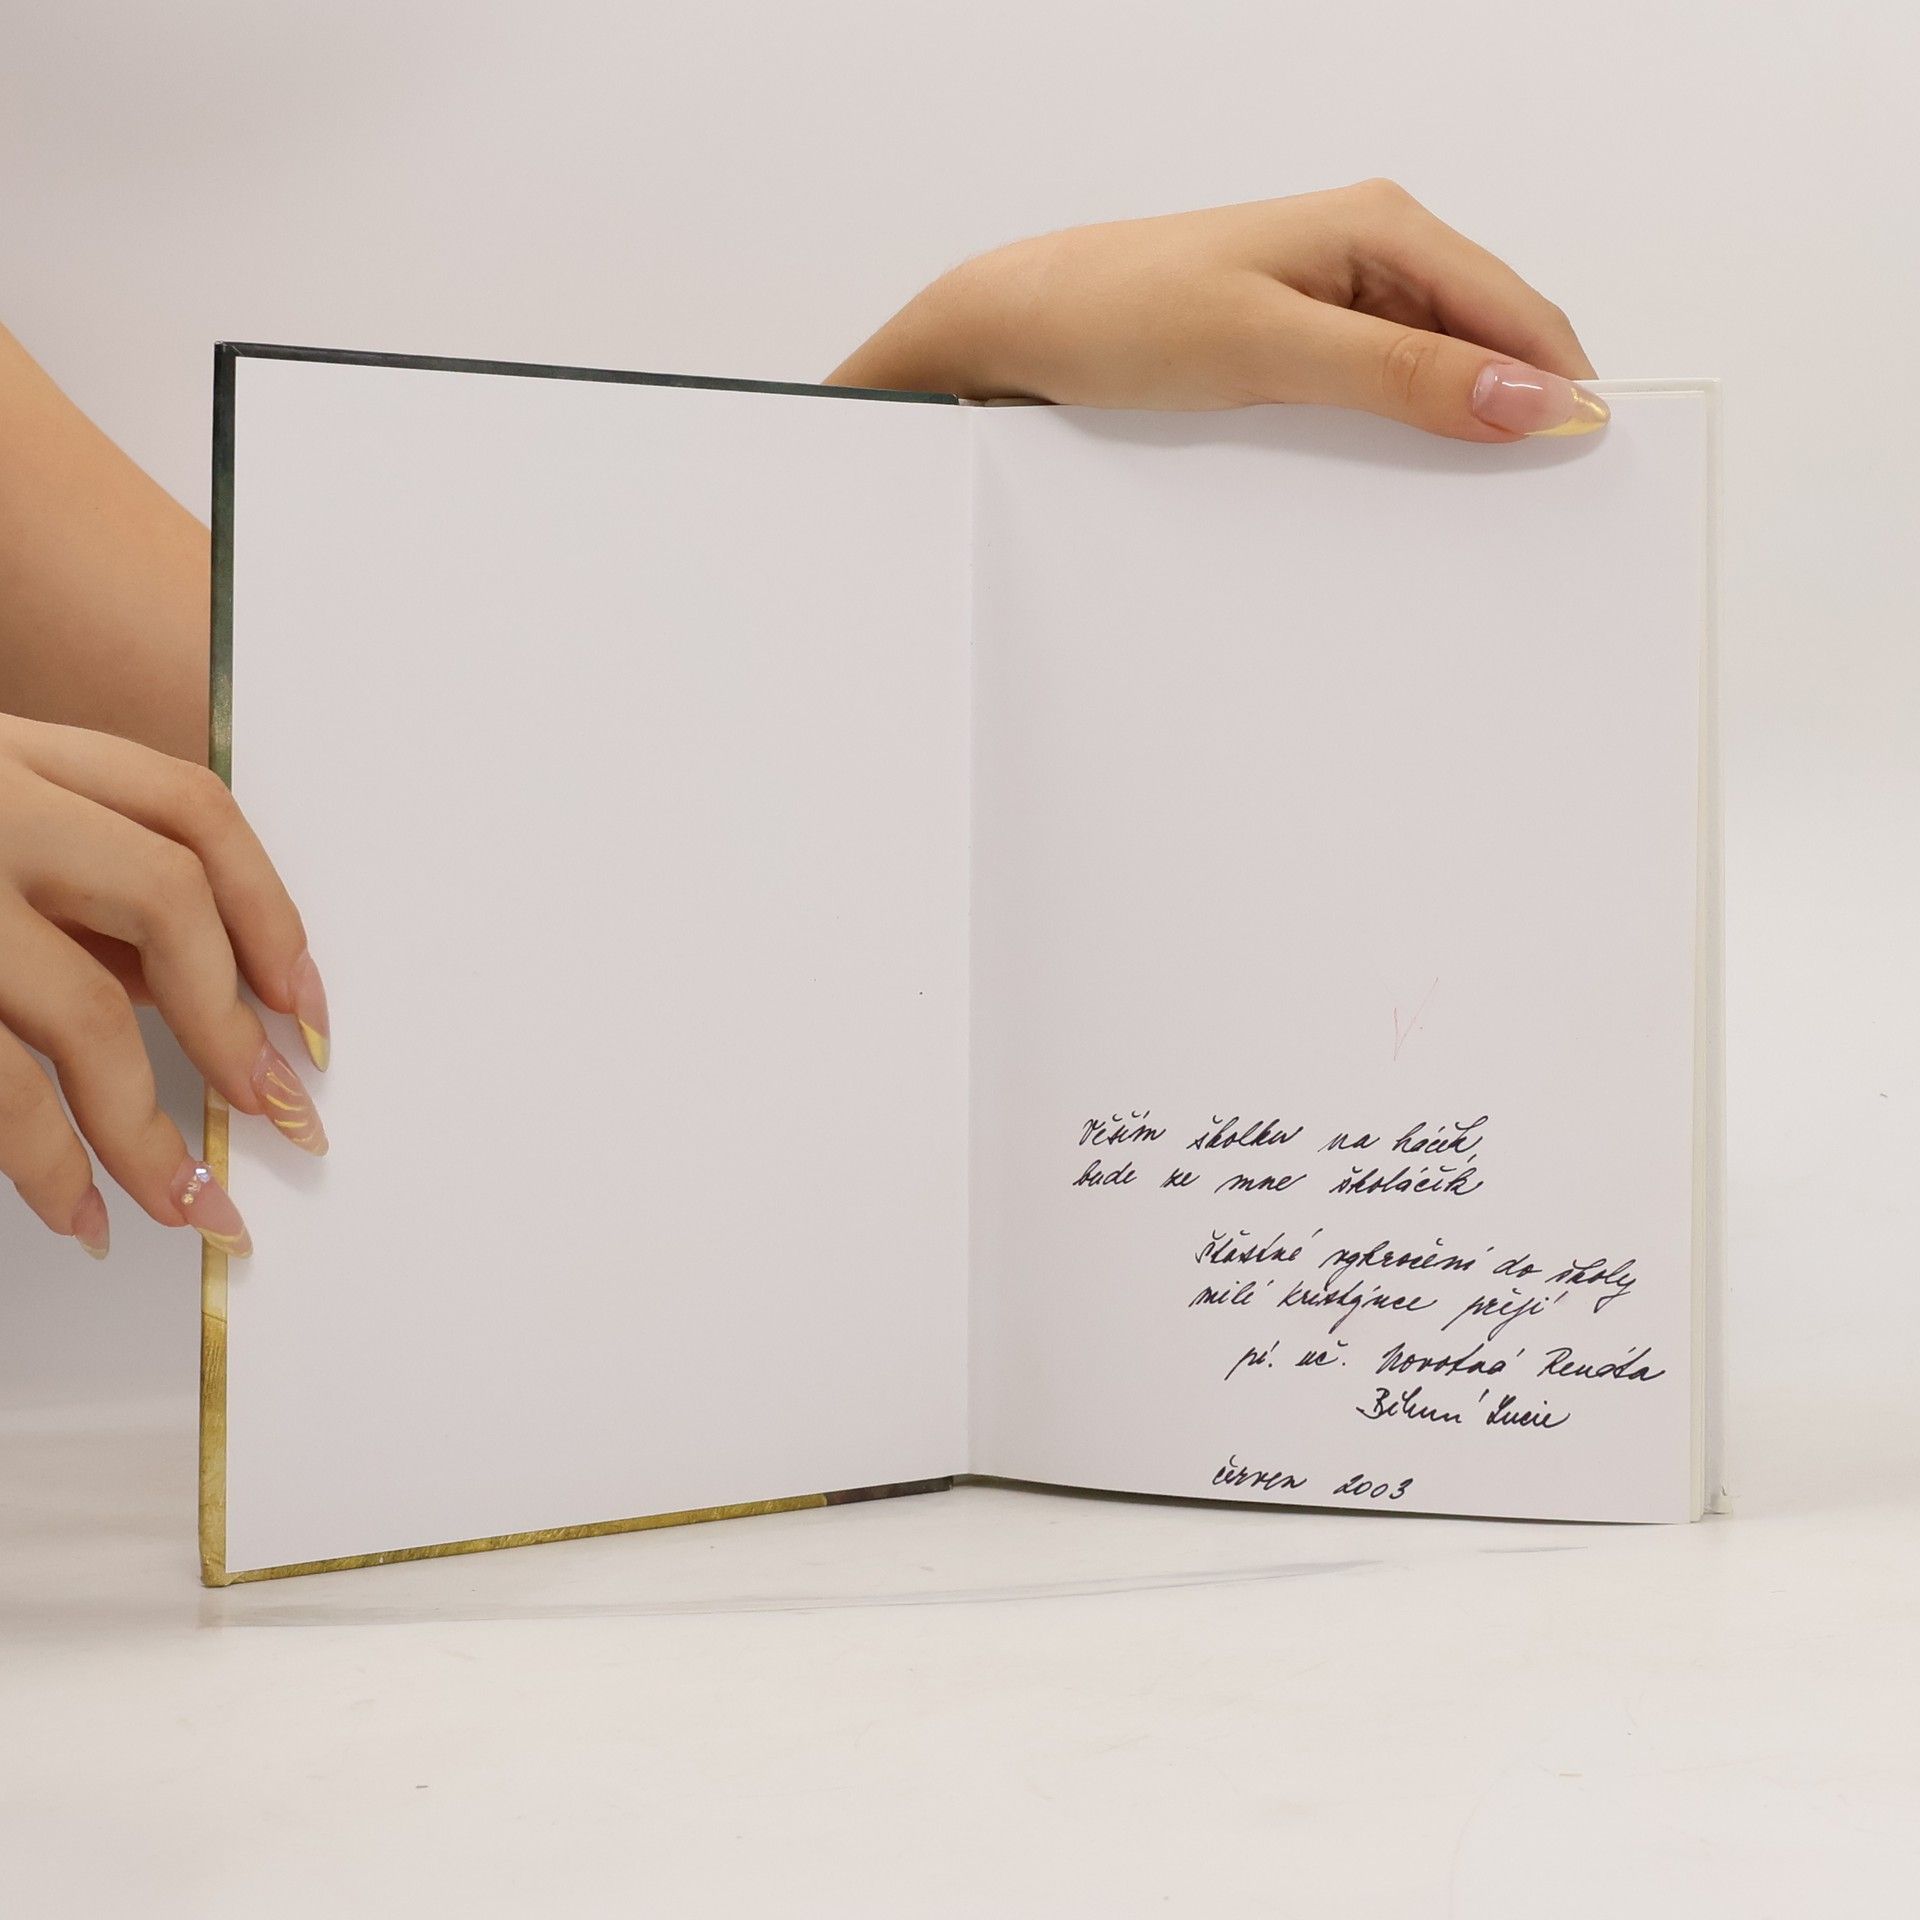 Věším školku na háček,
bude ze mne školáček
Šťastné vykročení do školy
milé Kristýnce přejí
pí. uč. Novotná Renáta
Lucie
červen 2003